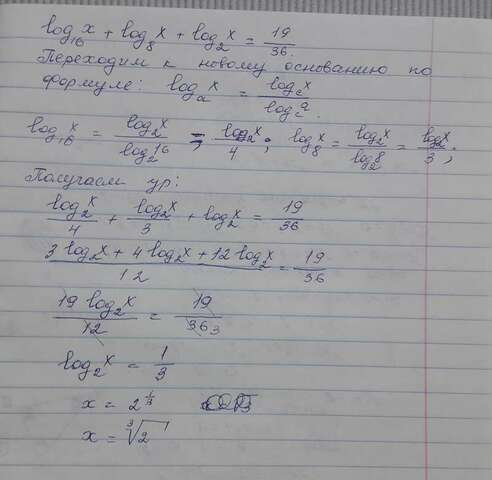 log₁₆ x + log₈ x + log₂ x = 19/36.
Переходим к новому основанию по
формуле: logₐ x = log_c x / log_c a.
log₁₆ x = log₂ x / log₂ 16 = log₂ x / 4, log₈ x = log₂ x / log₂ 8 = log₂ x / 3,
Получаем ур:
log₂ x / 4 + log₂ x / 3 + log₂ x = 19/36
(3 log₂ x + 4 log₂ x + 12 log₂ x) / 12 = 19/36
19 log₂ x / 12 = 19 / 36 3
log₂ x = 1/3
x = 2^(1/3)
x = ∛2